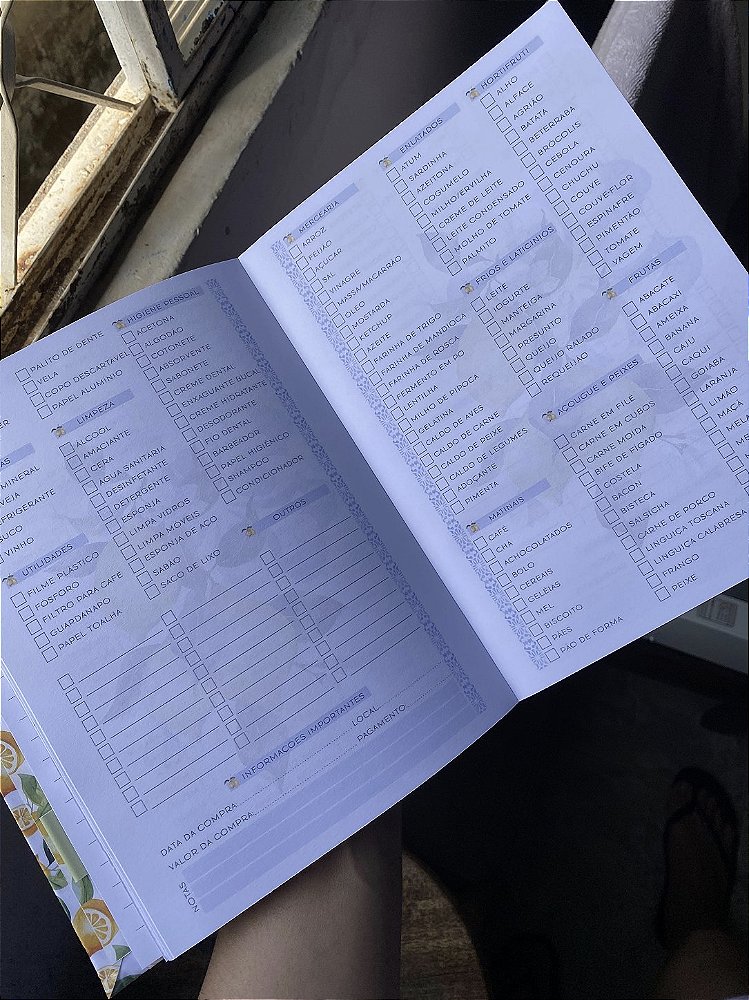 PALITO DE DENTE
VELA
COPO DESCARTÁVEL
PAPEL ALUMÍNIO
MINERAL
SUCO
VINHO
UTILIDADES
FILME PLÁSTICO
FÓSFORO
FILTRO PARA CAFÉ
GUARDANAPO
PAPEL TOALHA
LIMPEZA
ÁLCOOL
AMACIANTE
CERA
ÁGUA SANITÁRIA
DESINFETANTE
DETERGENTE
ESPONJA
LIMPA VIDROS
LIMPA MÓVEIS
ESPONJA DE AÇO
SABÃO
SACO DE LIXO
HIGIENE PESSOAL
ACETONA
ALGODÃO
COTONETE
ABSORVENTE
SABONETE
CREME DENTAL
ENXAGUANTE BUCAL
CREME HIDRATANTE
DESODORANTE
FIO DENTAL
BARBEADOR
PAPEL HIGIÊNICO
SHAMPOO
CONDICIONADOR
OUTROS
INFORMAÇÕES IMPORTANTES
DATA DA COMPRA LOCAL
VALOR DA COMPRA PAGAMENTO
NOTAS
MERCEARIA
ARROZ
FEIJÃO
AÇÚCAR
SAL
VINAGRE
MASSA/MACARRÃO
ÓLEO
MOSTARDA
KETCHUP
AZEITE
FARINHA DE TRIGO
FARINHA DE MANDIOCA
FARINHA DE ROSCA
FERMENTO EM PÓ
LENTILHA
MILHO DE PIPOCA
GELATINA
CALDO DE AVES
CALDO DE CARNE
CALDO DE PEIXE
CALDO DE LEGUMES
ADOÇANTE
PIMENTA
MATINAIS
CAFÉ
CHÁ
ACHOCOLATADOS
BOLO
CEREAIS
GELÉIAS
MEL
BISCOITO
PÃES
PÃO DE FORMA
ENLATADOS
ATUM
SARDINHA
AZEITONA
COGUMELO
MILHO/ERVILHA
CREME DE LEITE
LEITE CONDENSADO
MOLHO DE TOMATE
PALMITO
FRIOS E LATICÍNIOS
LEITE
IOGURTE
MANTEIGA
MARGARINA
PRESUNTO
QUEIJO
QUEIJO RALADO
REQUEIJÃO
AÇOUGUE E PEIXES
CARNE EM FILÉ
CARNE EM CUBOS
CARNE MOÍDA
BIFE DE FÍGADO
COSTELA
BACON
BISTECA
SALSICHA
CARNE DE PORCO
LINGUIÇA TOSCANA
LINGUIÇA CALABRESA
FRANGO
PEIXE
HORTIFRUTI
ALHO
ALFACE
AGRIÃO
BATATA
BETERRABA
BRÓCOLIS
CEBOLA
CENOURA
CHUCHU
COUVE
COUVE-FLOR
ESPINAFRE
PIMENTÃO
TOMATE
VAGEM
FRUTAS
ABACATE
ABACAXI
AMEIXA
BANANA
CAJU
CAQUI
GOIABA
LARANJA
LIMÃO